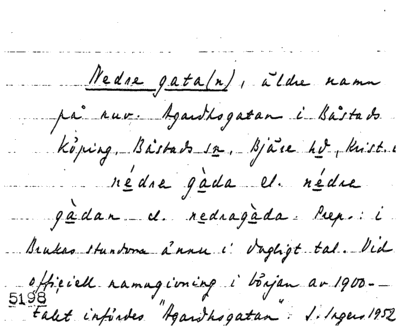 Nedre gata(n), äldre namn
på nuv. Agardhsgatan i Båstads
köping, Båstads sn, Bjäre hd, Krist.
nédre gàda el. nédre
gàdan el. nedragàda. Prep.: i
Brukas stundom ännu i dagligt tal. Vid
officiell namngivning i början av 1900-
5198
talet infördes "Agardhsgatan". S. Ingers 1952